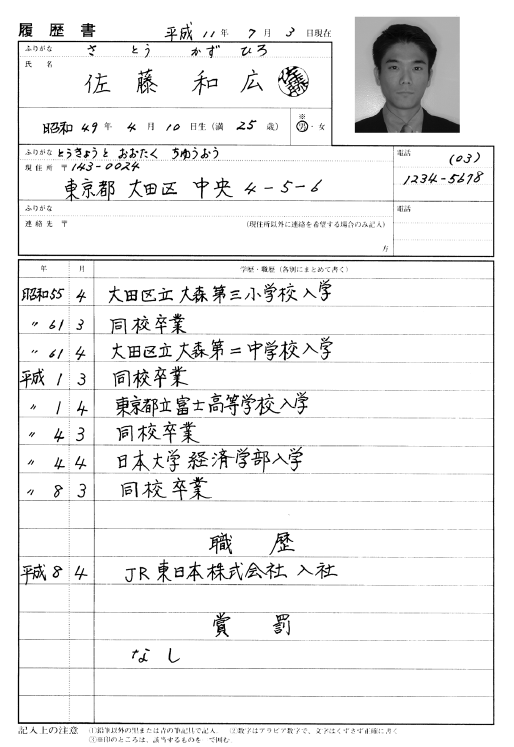 履歴書 平成 11年 7月 3日現在
ふりがな さとう かずひろ
氏名 佐藤 和広 佐藤
昭和 49年 4月 10日生(満 25歳) ※ 男・女
ふりがな とうきょうと おおたく ちゅうおう 電話 (03)
現住所 〒143-0024 1234-5678
東京都 大田区 中央 4-5-6
ふりがな 電話
連絡先 〒 (現住所以外に連絡を希望する場合のみ記入)
方
年 月 学歴・職歴(各別にまとめて書く)
昭和55 4 大田区立大森第三小学校入学
〃 61 3 同校卒業
〃 61 4 大田区立大森第二中学校入学
平成 1 3 同校卒業
〃 1 4 東京都立富士高等学校入学
〃 4 3 同校卒業
〃 4 4 日本大学 経済学部入学
〃 8 3 同校卒業
職歴
平成 8 4 JR東日本株式会社 入社
賞罰
なし
記入上の注意 ①鉛筆以外の黒または青の筆記具で記入。 ②数字はアラビア数字で、文字はくずさず正確に書く。
③※印のところは、該当するものを で囲む。